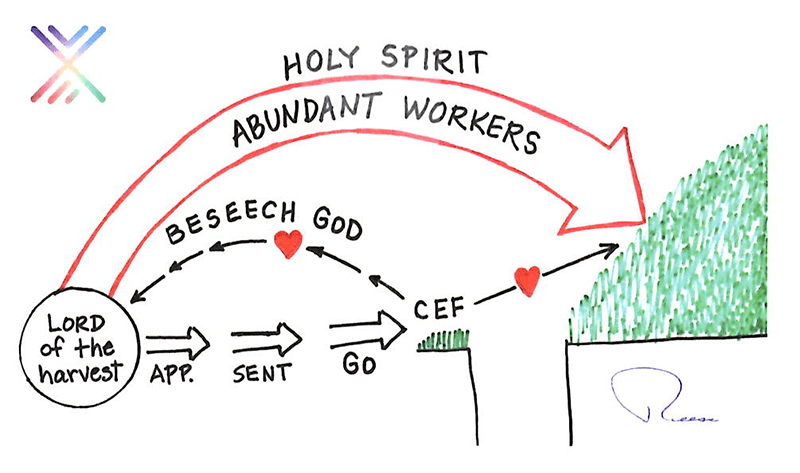 HOLY SPIRIT
ABUNDANT WORKERS
BESEECH GOD
CEF
LORD
of the
harvest
APP.
SENT
GO
Reese